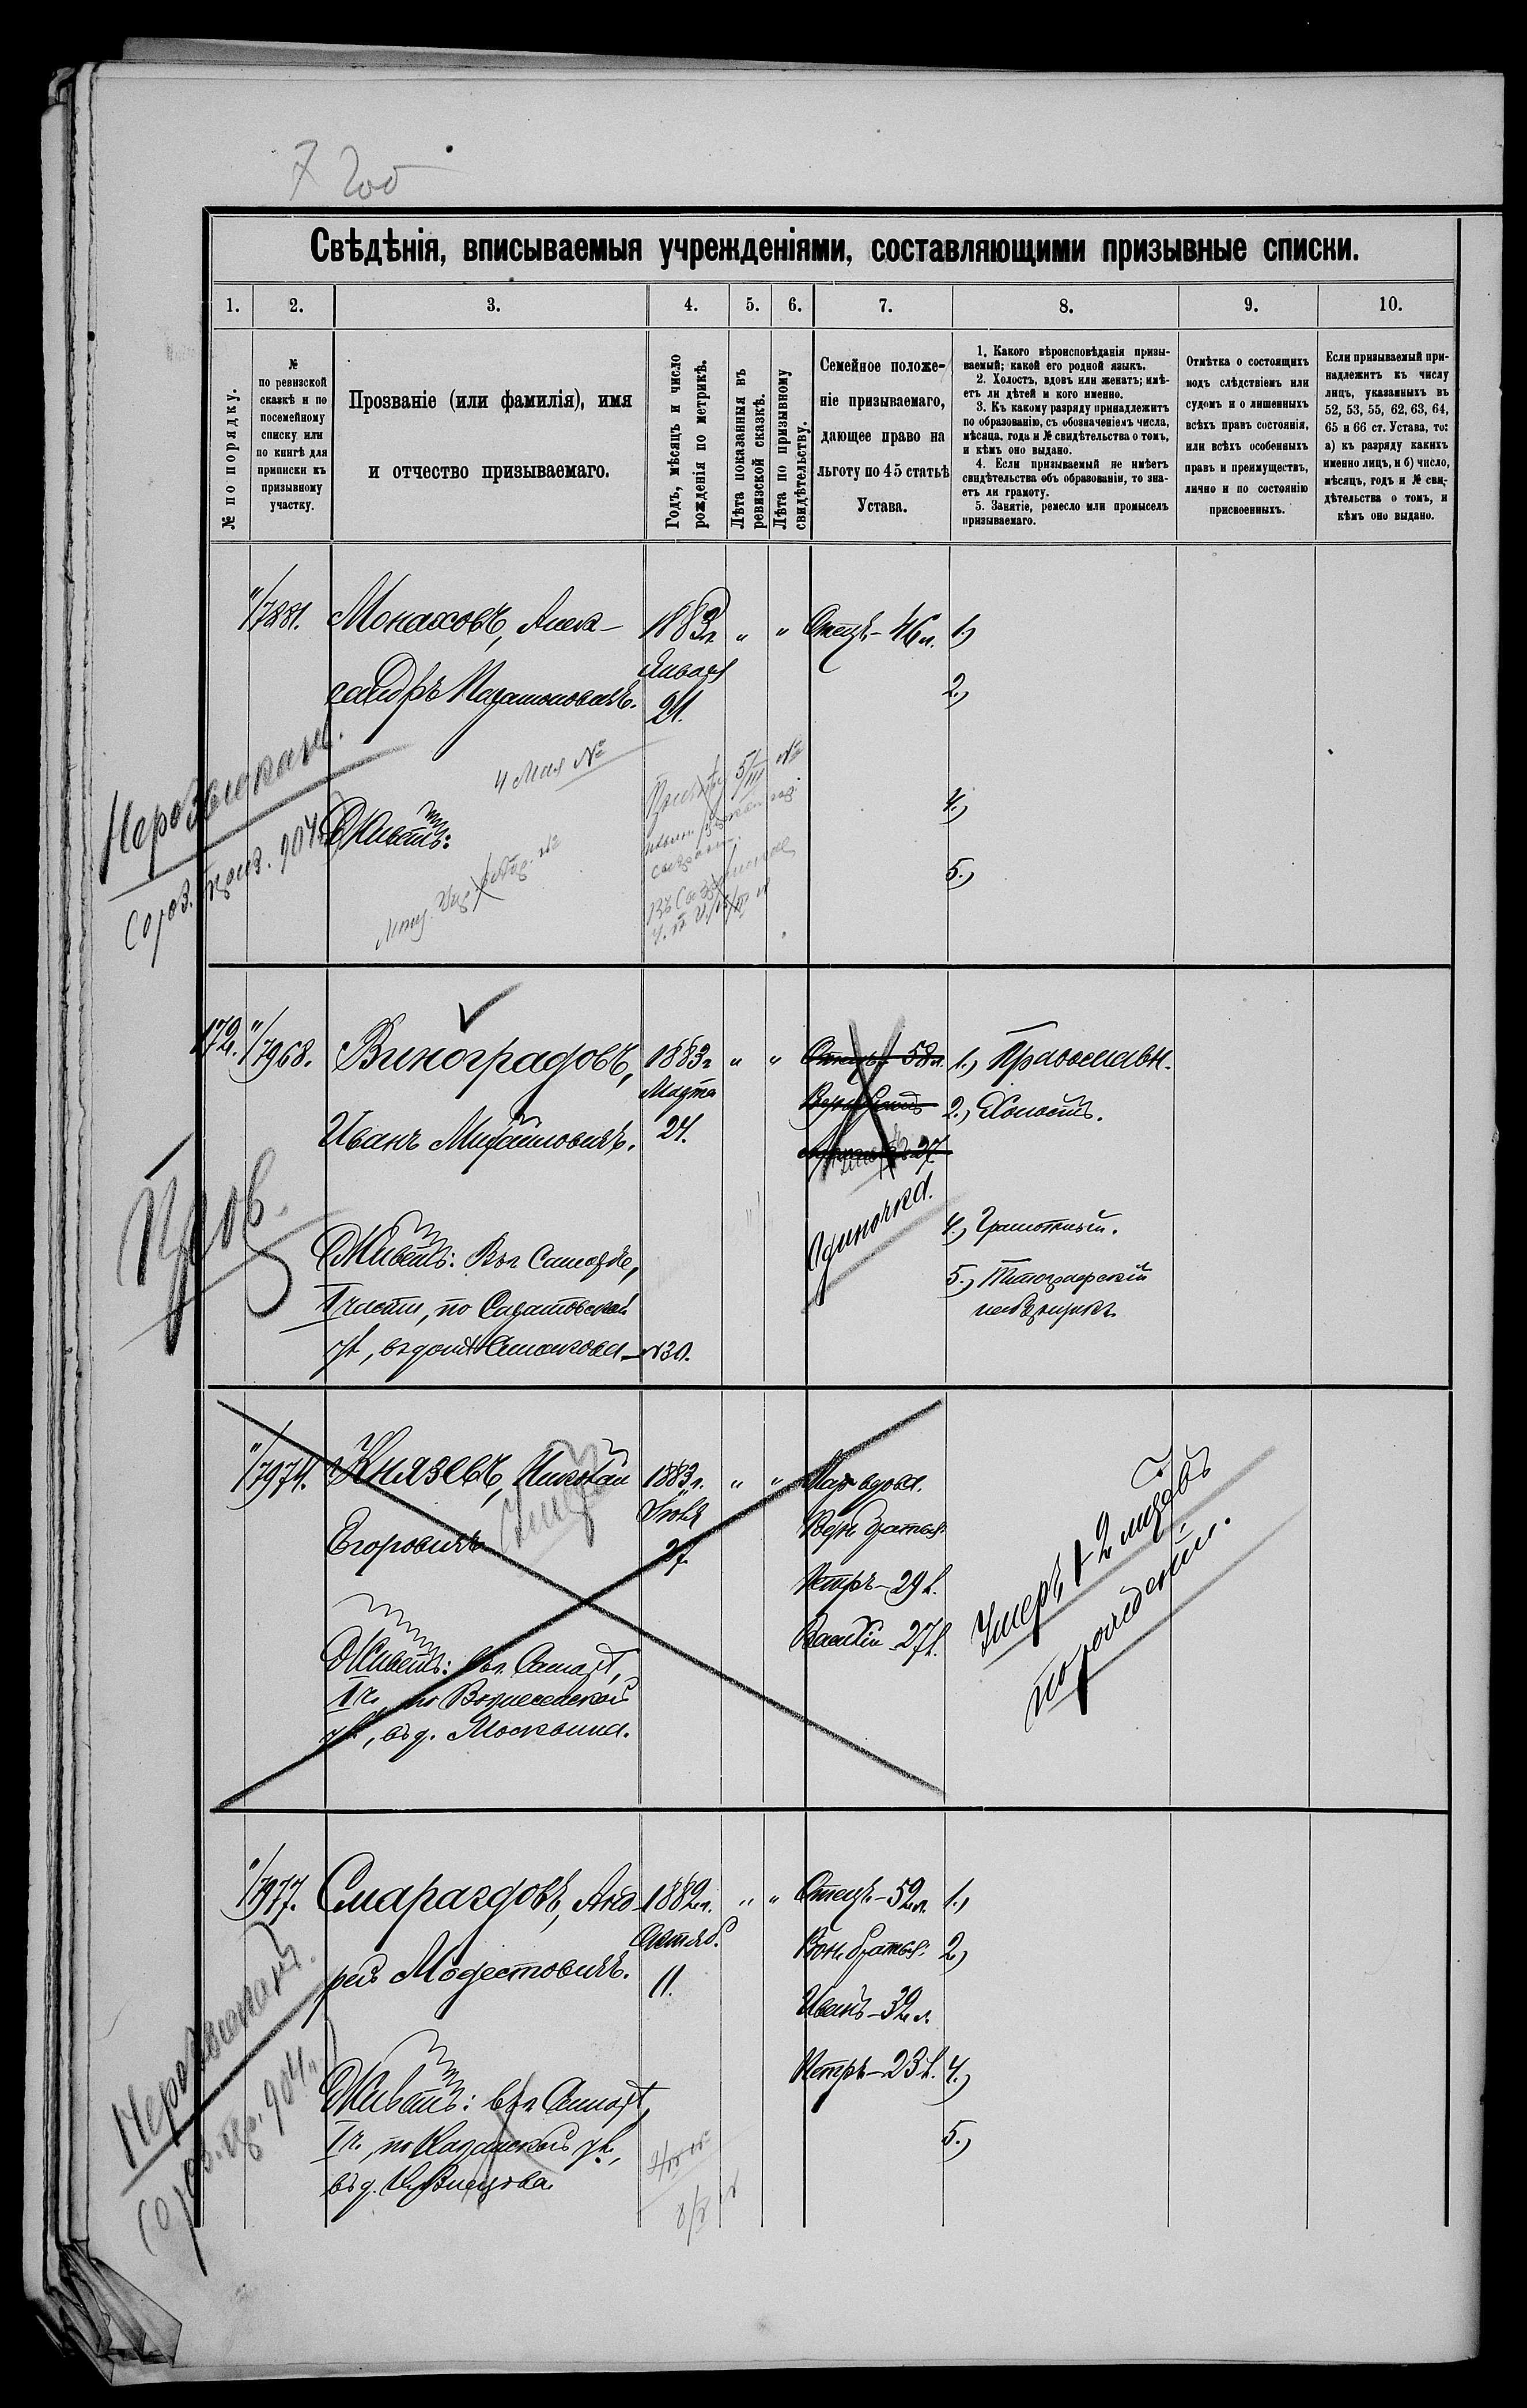 7 200
Свѣдѣнія, вписываемыя учрежденіями, составляющими призывные списки.
1. 2. 3. 4. 5. 6. 7. 8. 9. 10.
№ по порядку.
№
по ревизской
сказкѣ и по
посемейному
списку или
по книгѣ для
приписки къ
призывному
участку.
Прозваніе (или фамилія), имя
и отчество призываемаго.
Годъ, мѣсяцъ и число
рожденія по метрикѣ.
Лѣта показанныя въ
ревизской сказкѣ.
Лѣта по призывному
свидѣтельству.
Семейное положе-
ніе призываемаго,
дающее право на
льготу по 45 статьѣ
Устава.
1. Какого вѣроисповѣданія призы-
ваемый; какой его родной языкъ.
2. Холостъ, вдовъ или женатъ; имѣ-
етъ ли дѣтей и кого именно.
3. Къ какому разряду принадлежитъ
по образованію, съ обозначеніемъ числа,
мѣсяца, года и № свидѣтельства о томъ,
и кѣмъ оно выдано.
4. Если призываемый не имѣетъ
свидѣтельства объ образованіи, то зна-
етъ ли грамоту.
5. Занятіе, ремесло или промыселъ
призываемаго.
Отмѣтка о состоящихъ
подъ слѣдствіемъ или
судомъ и о лишенныхъ
всѣхъ правъ состоянія,
или всѣхъ особенныхъ
правъ и преимуществъ,
лично и по состоянію
присвоенныхъ.
Если призываемый при-
надлежитъ къ числу
лицъ, указанныхъ въ
52, 53, 55, 62, 63, 64,
65 и 66 ст. Устава, то:
а) къ разряду какихъ
именно лицъ, и б) число,
мѣсяцъ, годъ и № сви-
дѣтельства о томъ, и
кѣмъ оно выдано.
"/7881. Монаховъ, Алек- 1883г. " " Отецъ-46л. 1.)
сандръ Января 2.)
21.
Неразыскан.
4 Мая №
Живетъ: 4.)
5.)
172. "/7968. Виноградовъ, 1883г. " " Отецъ 58л. 1.) Православн.
Марта
Иванъ Михайловичъ. 24. 2.) Холостъ.
27
Одиночка.
4.) Грамотный.
Живетъ: Въ г. Самарѣ,
I части, по Саратовской 5.) Типографскій
ул., въ домѣ №30. наборщикъ.
"/7974. Князевъ, Николай 1883г. " " Мать вдова.
Умеръ
Егоровичъ Іюля
27
Петръ-29л.
Василій-27л.
Живетъ: въ г. Самарѣ,
I ч., по Вознесенской
ул., въ д. Москвина.
Умеръ 2 мѣсяцевъ
по рожденіи.
"/7977. Смарагдовъ, Анд- 1882г. " " Отецъ-52л. 1.)
Октяб. братья: 2.)
рей Модестовичъ. 11.
Иванъ-32л.
Петръ-23л. 4.)
Неразыскан.
Живетъ: въ г. Самарѣ,
I ч., по Казанской ул., 5.)
въ д.